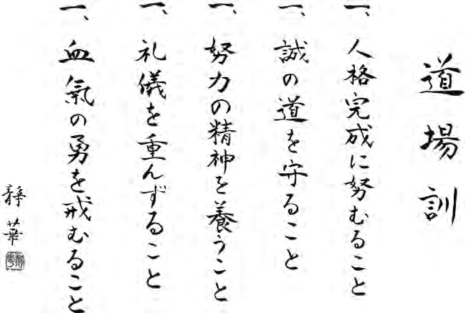 道場訓
一、人格完成に努むること
一、誠の道を守ること
一、努力の精神を養うこと
一、礼儀を重んずること
一、血氣の勇を戒むること
静華